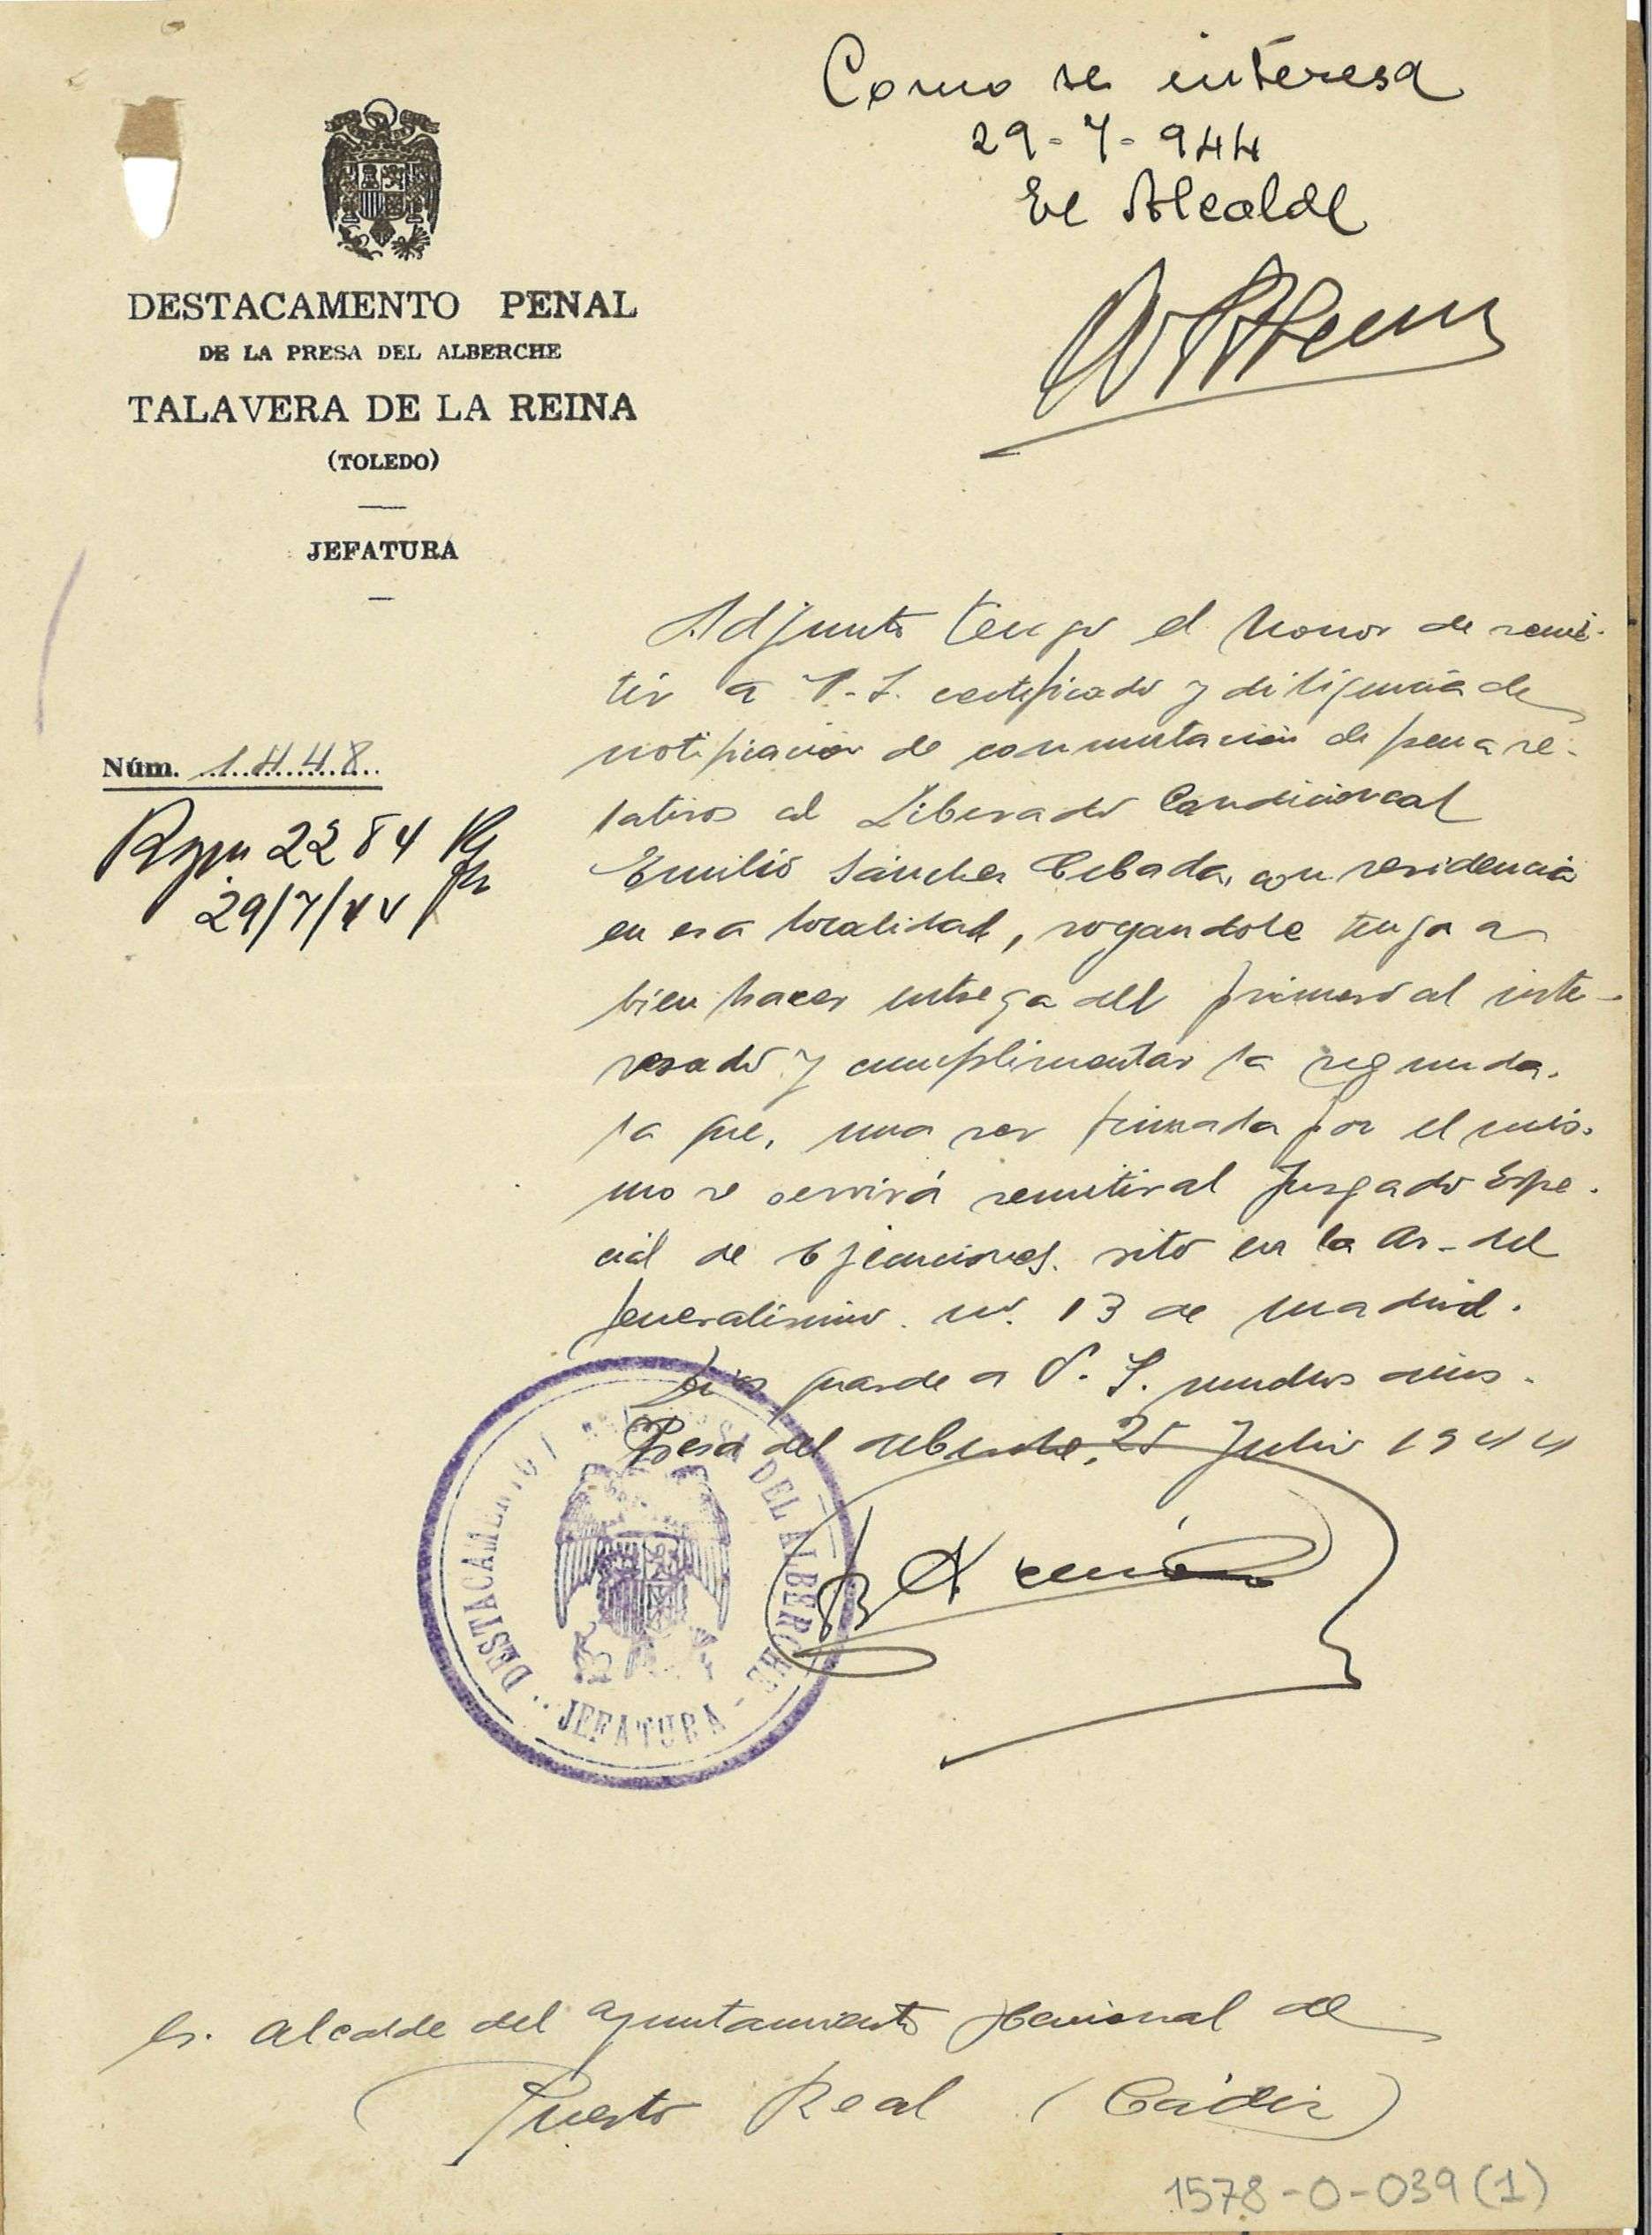 Como se interesa
29-7-944
El Alcalde
DESTACAMENTO PENAL
DE LA PRESA DEL ALBERCHE
TALAVERA DE LA REINA
(TOLEDO)
JEFATURA
Núm. 1448
2284
29/7/44
Adjunto tengo el honor de remi-
tir a V.S. certificado y diligencia de
notificación de conmutación de pena re-
lativos al Liberado Condicional
Emilio Sánchez Cebada, con residencia
en esa localidad, rogandole tenga a
bien hacer entrega del primero al inte-
resado y cumplimentar la segunda,
la que, una vez firmada por el mis-
mo se servirá remitir al Juzgado Espe-
cial de Ejecuciones. sito en la Av. del
Generalisimo. nº. 13 de Madrid.
Dios guarde a V. S. muchos años.
Presa del Alberche, 25 Julio 1944
DESTACAMENTO PRESA DEL ALBERCHE
JEFATURA
Sr. Alcalde del Ayuntamiento Nacional de
Puerto Real (Cádiz)
1578-0-039(1)